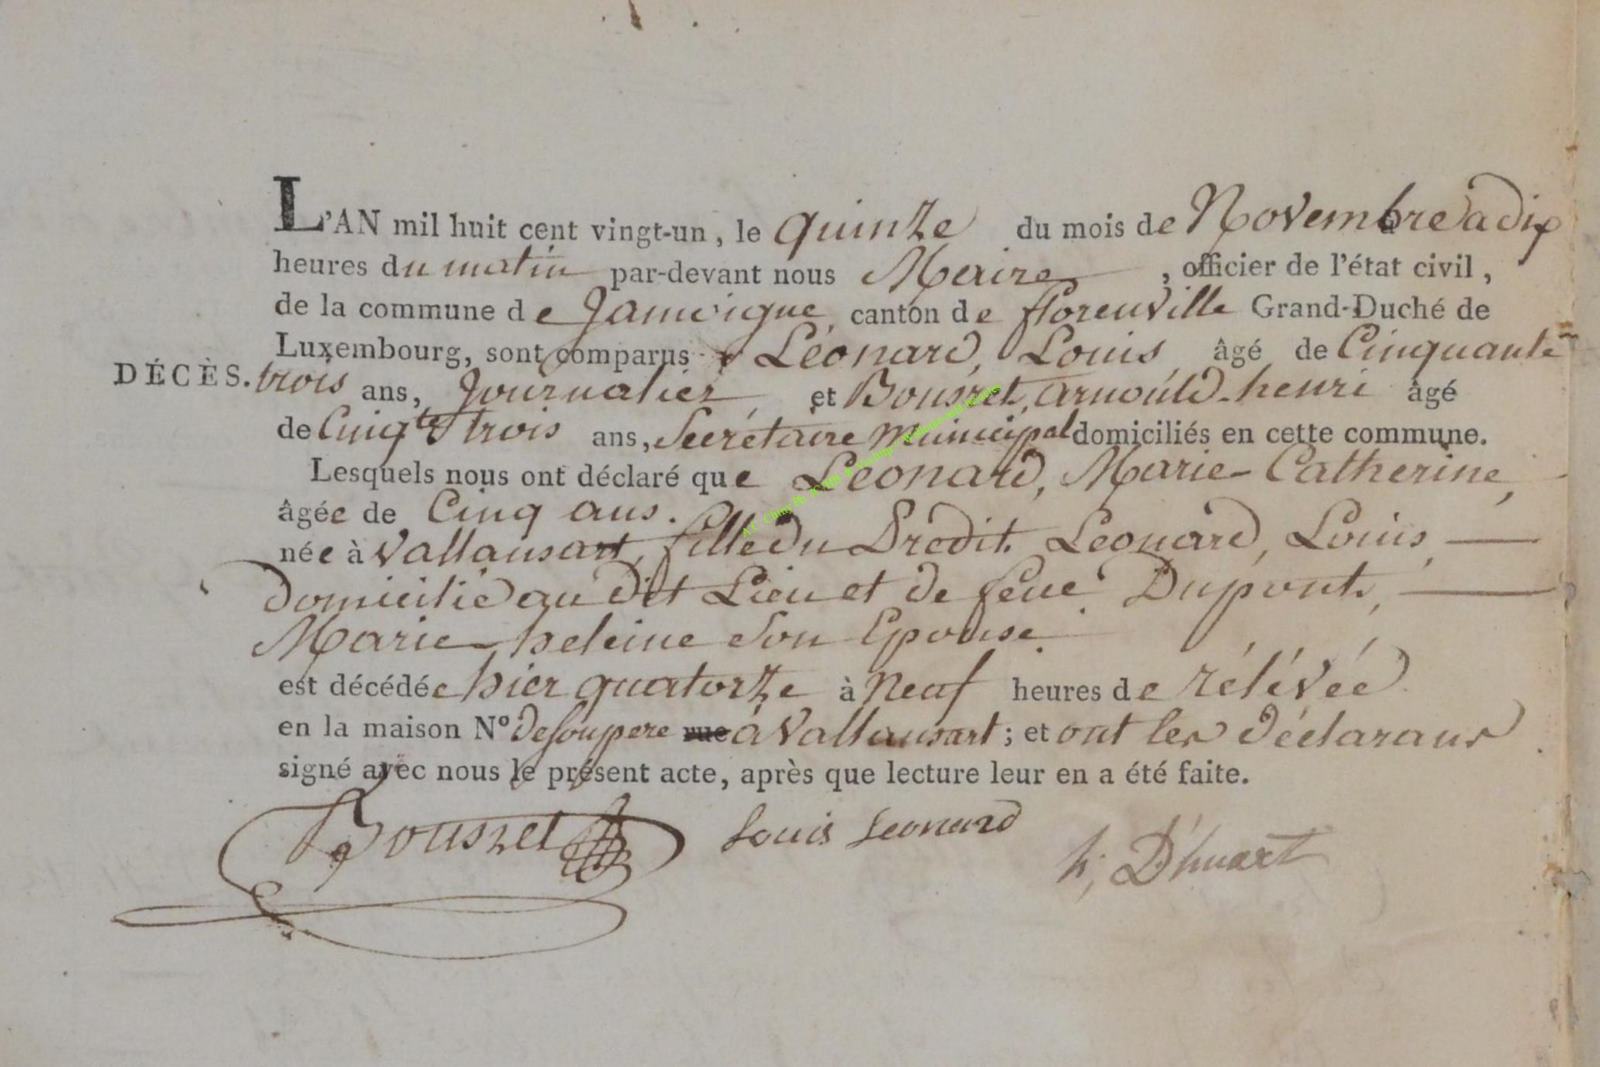 L'AN mil huit cent vingt-un, le quinze du mois de Novembre a dix
heures du matin par-devant nous Maire, officier de l'état civil,
de la commune de Jamoigne, canton de florenville Grand-Duché de
Luxembourg, sont comparus Léonard, Louis, âgé de Cinquante
DÉCÈS. trois ans, Journalier, et Bousret, arnould-henri âgé
de Cinqte trois ans, Secretaire Municipal domiciliés en cette commune.
Lesquels nous ont déclaré que Léonard, Marie-Catherine,
âgée de Cinq ans.
née à Vallansart, fille du Predit. Leonard, Louis,
Domicilié au dit Lieu et de feue Dupont,
Marie-heleine Son Epouse.
est décédée hier quatorze à Neuf heures de rélévée
en la maison N° de Son pere rue à Vallansart; et ont les déclarans
signé avec nous le présent acte, après que lecture leur en a été faite.
Bousret Louis Leonard h, D'huart